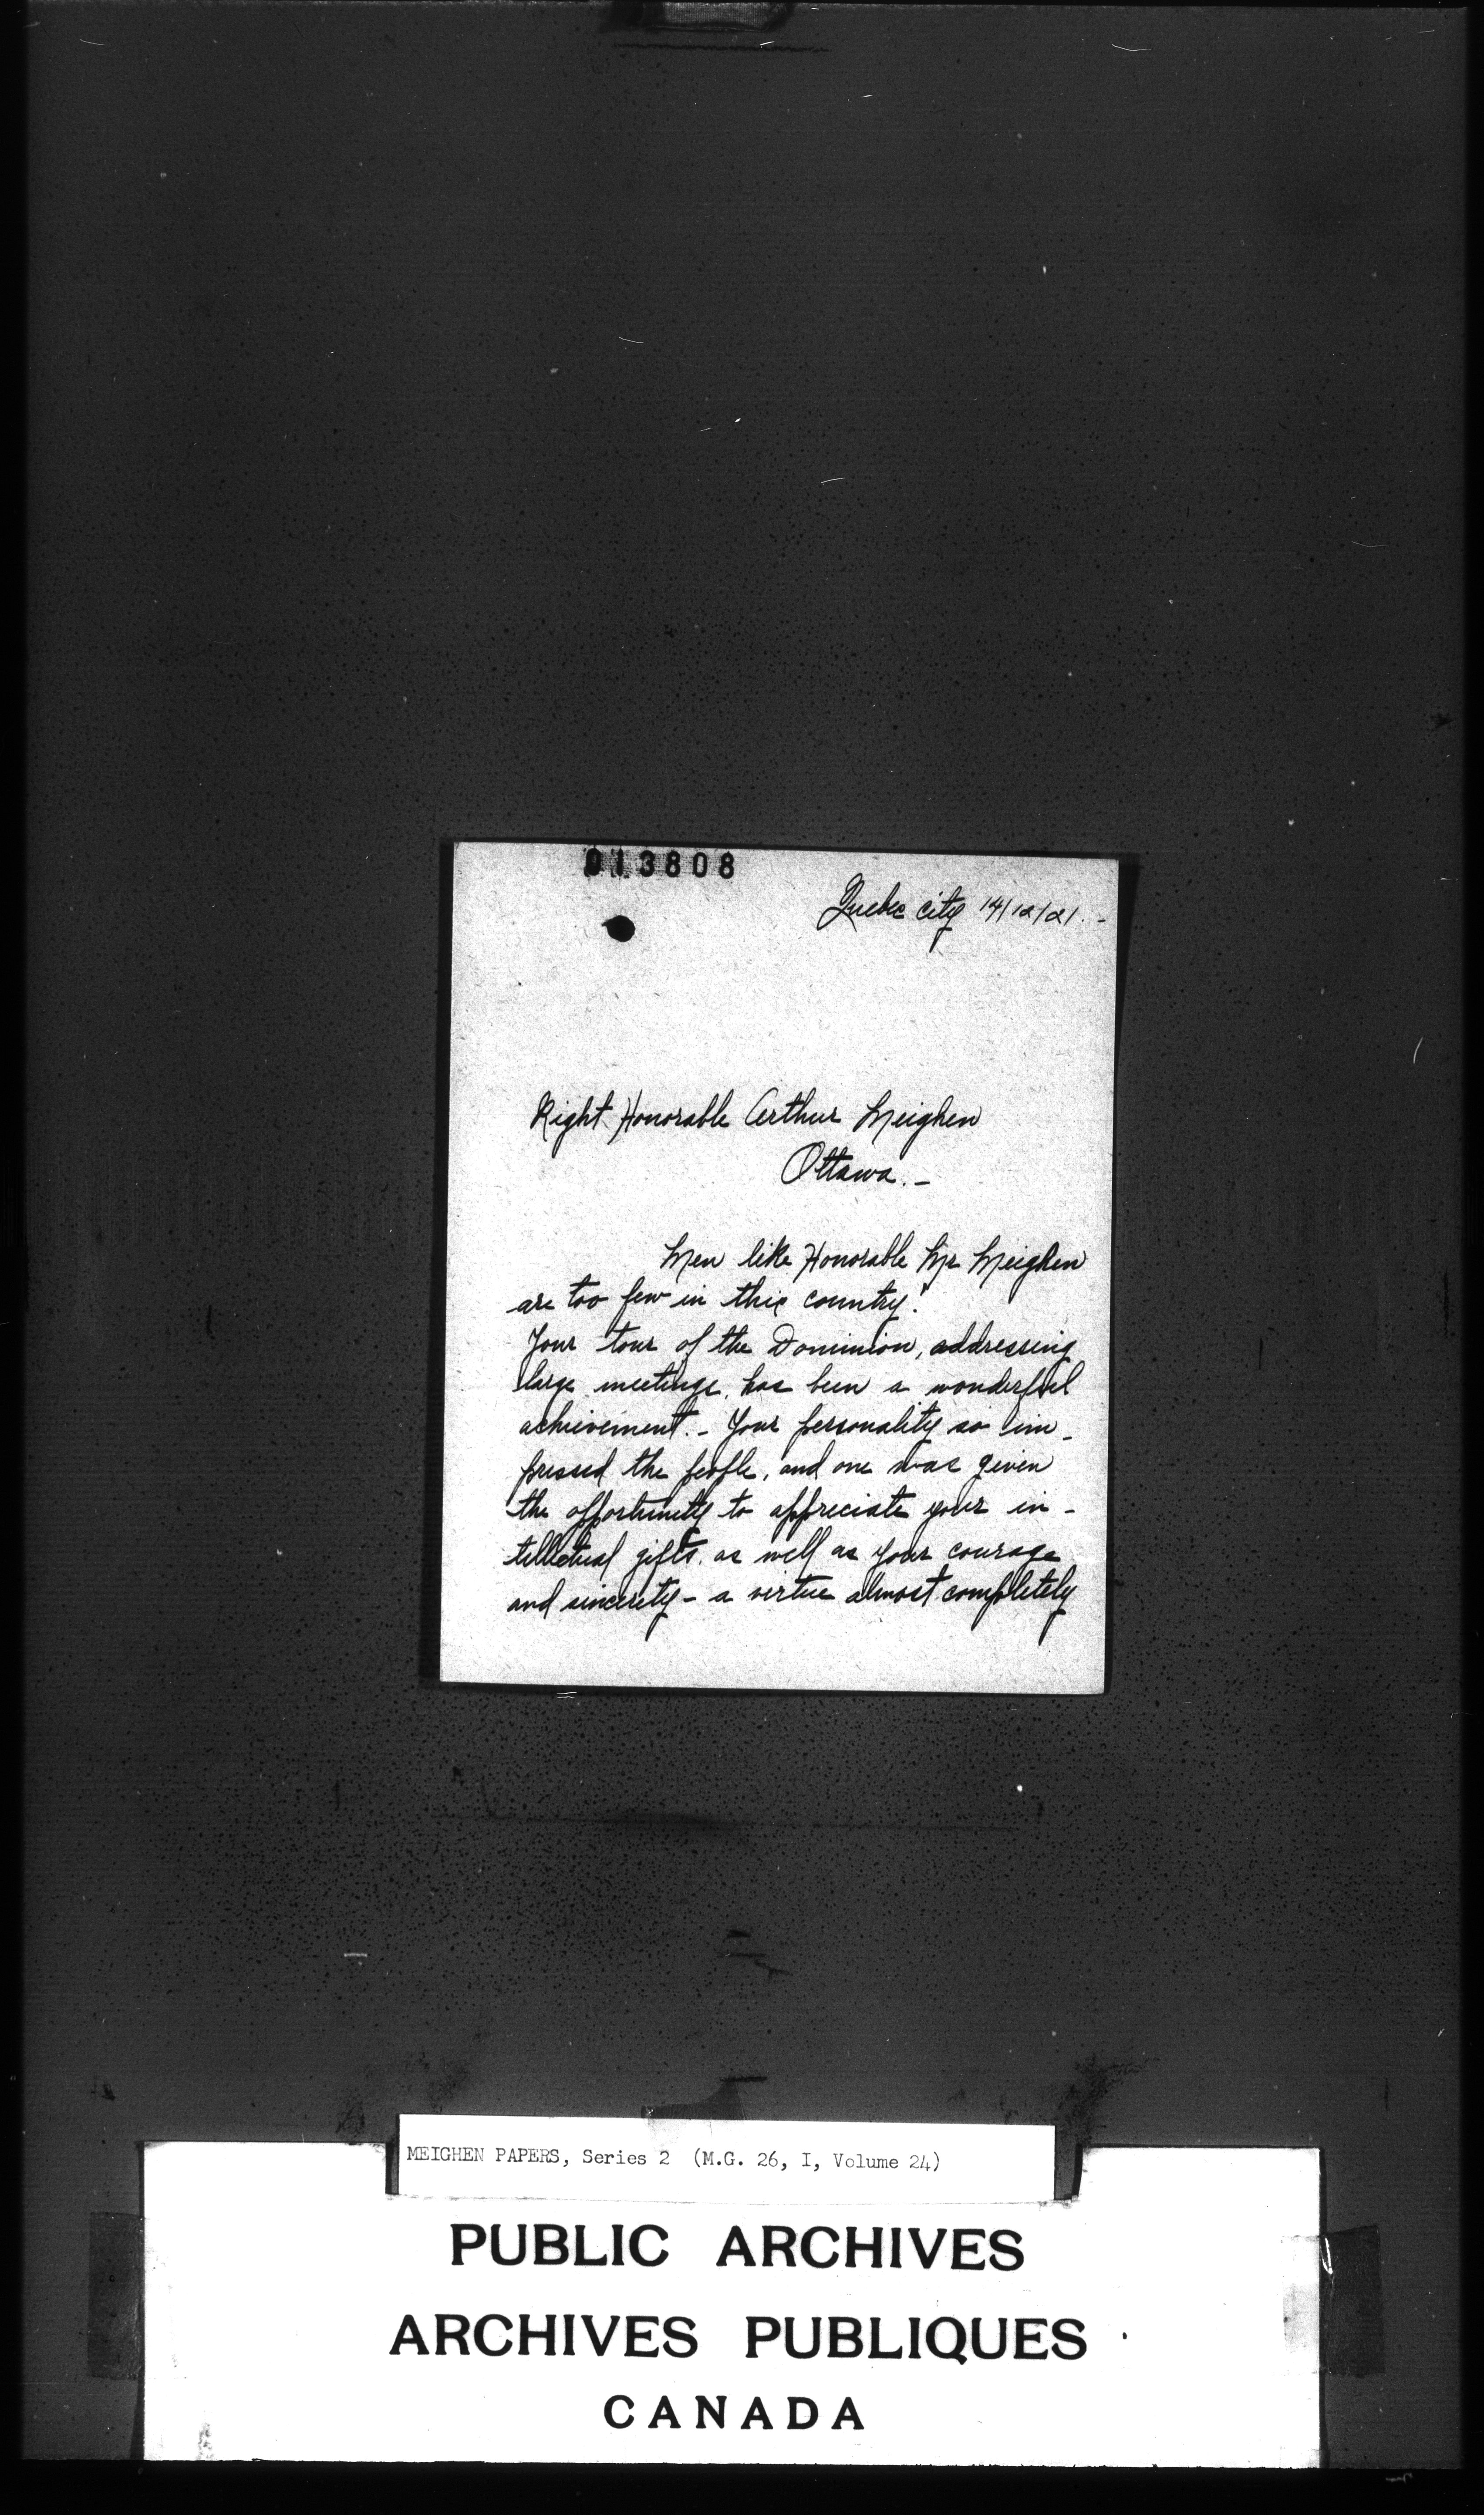 013808
Quebec City 14/12/21.-
Right Honorable Arthur Meighen
Ottawa.-
Men like Honorable Mr Meighen
are too few in this country!
Your tour of the Dominion, addressing
large meetings, has been a wonderful
achievement.- Your personality so im-
pressed the people, and one was given
the opportunity to appreciate your in-
tellectual gifts, as well as your courage
and sincerity - a virtue almost completely
MEIGHEN PAPERS, Series 2 (M.G. 26, I, Volume 24)
PUBLIC ARCHIVES
ARCHIVES PUBLIQUES
CANADA